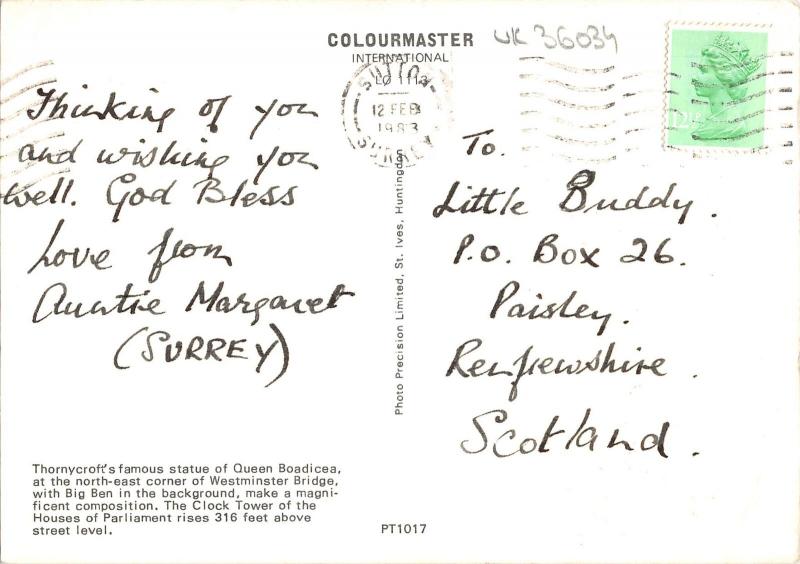 COLOURMASTER
INTERNATIONAL
UK 36034
SUTTON
12 FEB
1983
SURREY
12½
Thinking of you
and wishing you
well. God Bless
Love from
Auntie Margaret
(SURREY)
To.
Little Buddy.
P.O. Box 26.
Paisley.
Renfrewshire.
Scotland.
Photo Precision Limited, St. Ives, Huntingdon
Thornycroft's famous statue of Queen Boadicea,
at the north-east corner of Westminster Bridge,
with Big Ben in the background, make a magni-
ficent composition. The Clock Tower of the
Houses of Parliament rises 316 feet above
street level.
PT1017